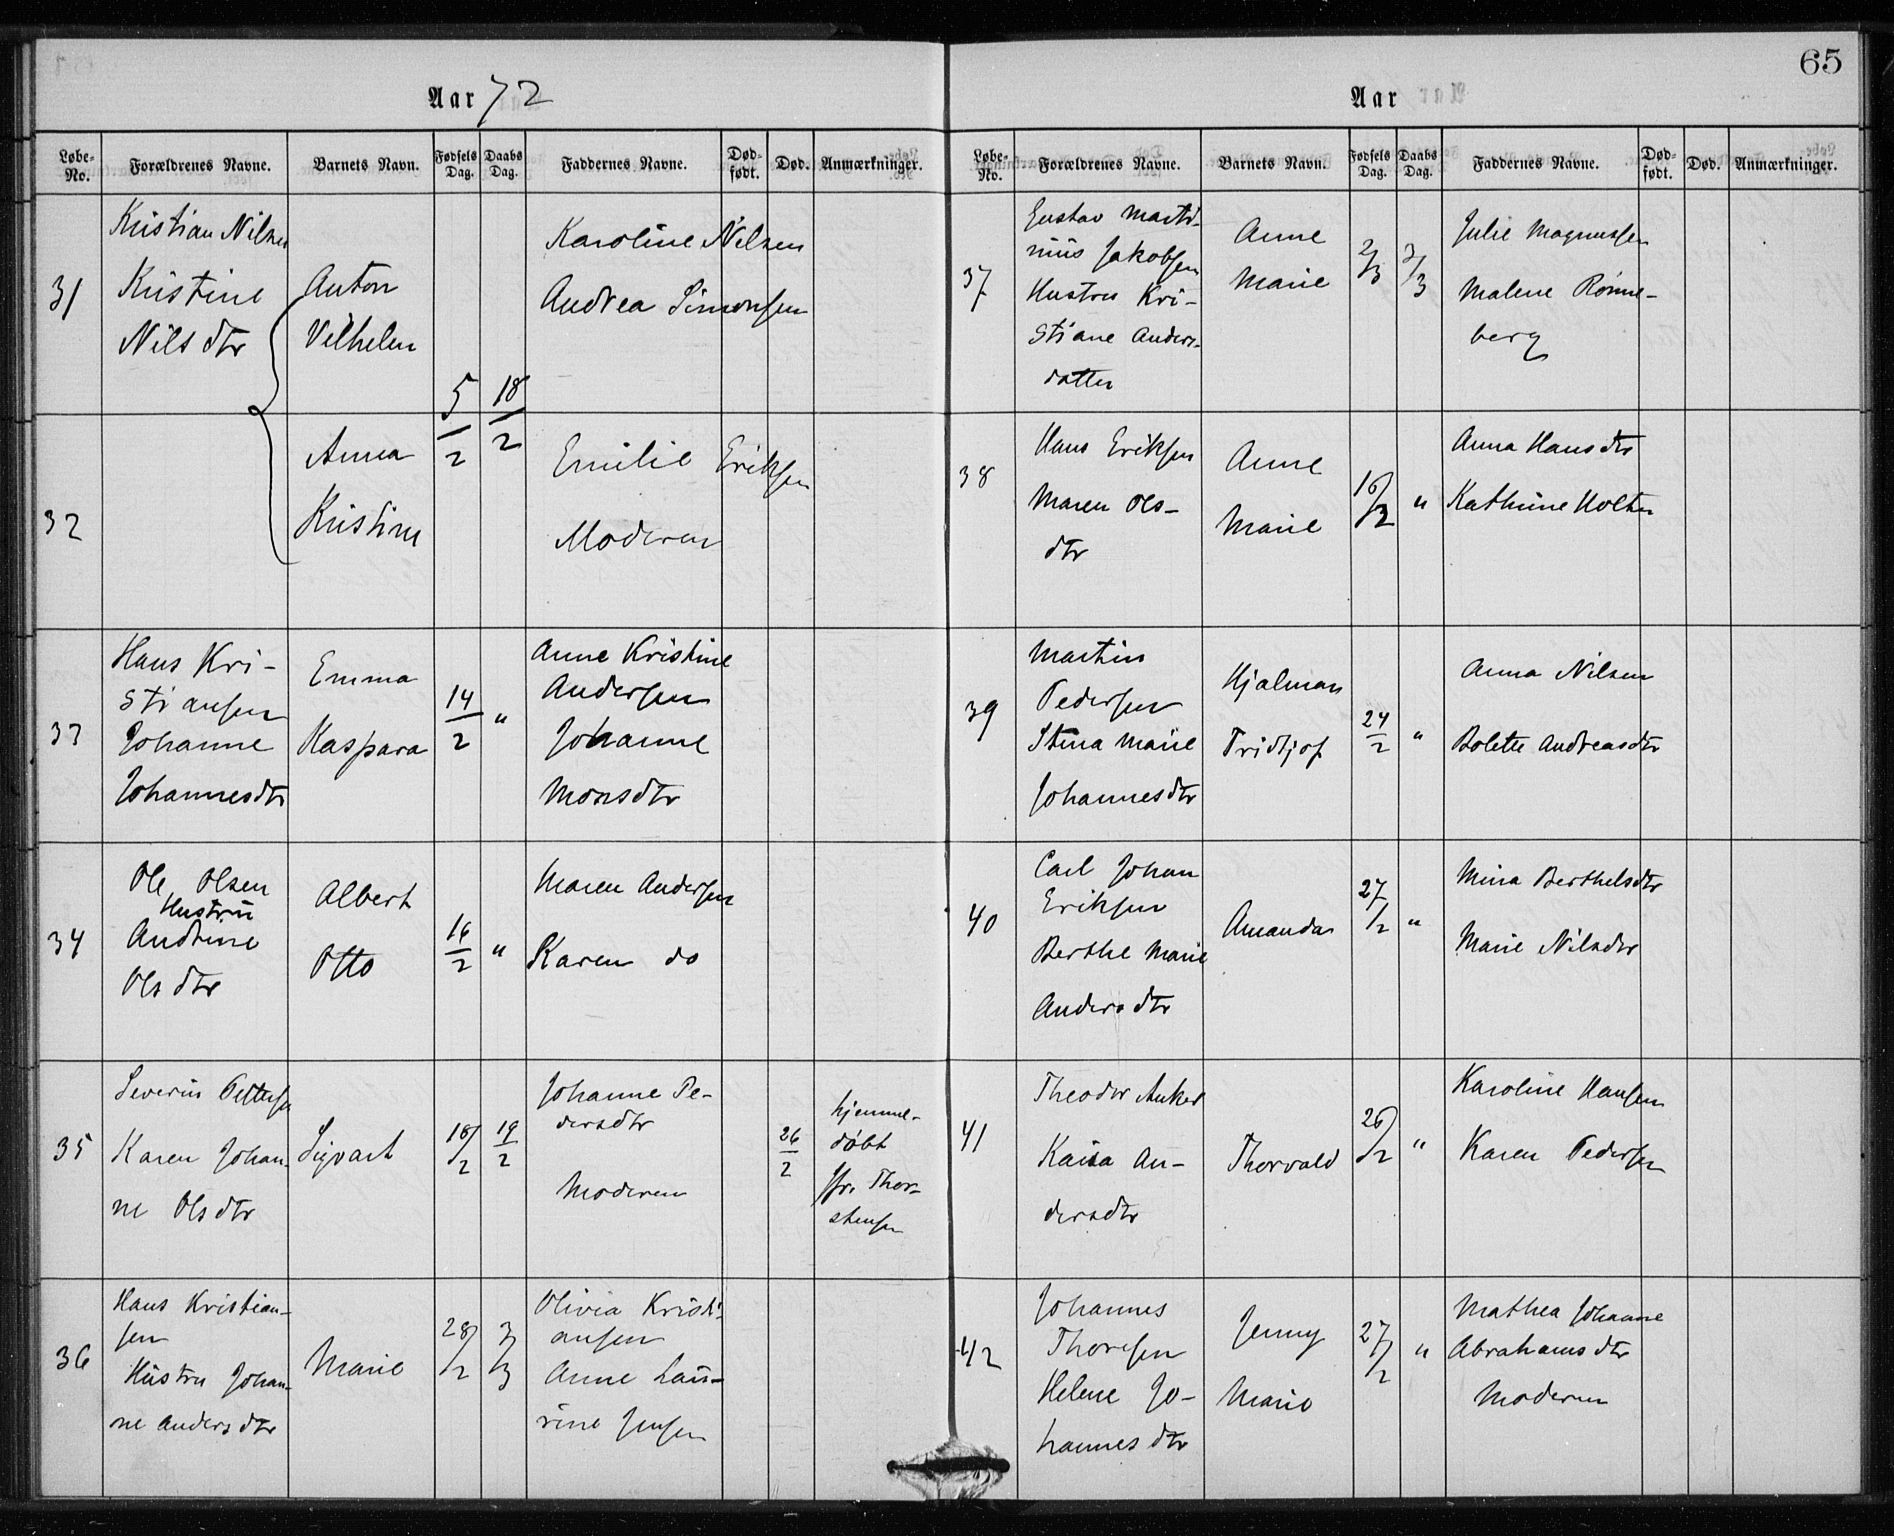 65
Aar 72
Løbe-No. Forældrenes Navne. Barnets Navn. Fødsels Dag. Daabs Dag. Faddernes Navne. Død-født. Død. Anmærkninger.
31
Kristian Nilsen
Kristine
Nilsdtr
Anton
Vilhelm
5/2 18/2
Karoline Nilsen
Andrea Simonsen
32
Anna
Kristine
Emilie Eriksen
Moderen
33
Hans Kri-
stiansen
Johanne
Johannesdtr
Emma
Kaspara
14/2 "
Anne Kristine
Andersen
Johanne
Monsdtr
34
Ole Olsen
Hustru
Andrine
Olsdtr
Albert
Otto
16/2 "
Maren Andersen
Karen do
35
Severin Pettersen
Karen Johan-
ne Olsdtr
Sigvart
18/2 19/2
Johanne Pe-
dersdtr
Moderen
26/2
hjemme-
døbt
Fr. Thor-
stensen
36
Hans Kristian-
sen
Hustru Johan-
ne Andersdtr
Marie
28/2 3/3
Olivia Kristi-
ansen
Anne Lau-
rine Jensen
Aar
Løbe-No. Forældrenes Navne. Barnets Navn. Fødsels Dag. Daabs Dag. Faddernes Navne. Død-født. Død. Anmærkninger.
37
Gustav Marti-
nius Jakobsen
Hustru Kri-
stiane Anders-
datter
Anne
Marie
2/3 3/3
Julie Magnussen
Malene Rønne-
berg
38
Hans Eriksen
Maren Ols-
dtr
Anne
Marie
16/2 "
Anna Hansdtr
Kathrine Holter
39
Martin
Pedersen
Stina Marie
Johannesdtr
Hjalmar
Fridtjof
24/2 "
Anna Nilsen
Bolette Andreasdtr
40
Carl Johan
Eriksen
Berthe Marie
Andersdtr
Amanda
27/2 "
Mina Berthelsdtr
Marie Nilsdtr
41
Theodor Anker
Kaisa An-
dersdtr
Thorvald
26/2 "
Karoline Hansen
Karen Pedersen
42
Johannes
Thoresen
Helene Jo-
hannesdtr
Jenny
Marie
27/2 "
Mathea Johanne
Abrahamsdtr
Moderen